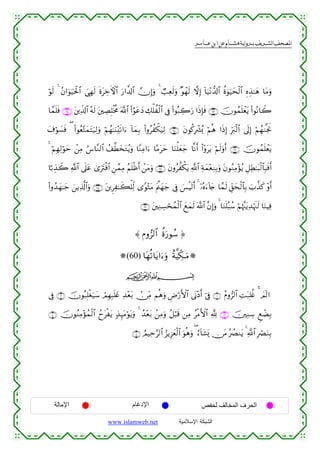 المصحف الشريف برواية هشام عن ابن عامر
وَمَا هَٰذِهِ ٱلْحَيَوٰةُ ٱلدُّنْيَآ إِلَّا لَهْوٌ وَلَعِبٌ ۚ وَإِنَّ ٱلدَّارَ ٱلْأَخِرَةَ لَهِيَ ٱلْحَيَوَانُ ۚ لَوْ
كَانُوا۟ يَعْلَمُونَ فَإِذَا رَكِبُوا۟ فِي ٱلْفُلْكِ دَعَوُا۟ ٱللَّهَ مُخْلِصِينَ لَهُ ٱلدِّينَ فَلَمَّا
نَجَّىٰهُمْ إِلَى ٱلْبَرِّ إِذَا هُمْ يُشْرِكُونَ لِيَكْفُرُوا۟ بِمَآ ءَاتَيْنَٰهُمْ وَلِيَتَمَتَّعُوا۟ ۖ فَسَوْفَ
يَعْلَمُونَ أَوَلَمْ يَرَوْا۟ أَنَّا جَعَلْنَا حَرَمًا ءَامِنًا وَيُتَخَطَّفُ ٱلنَّاسُ مِنْ حَوْلِهِمْ ۚ
أَفَبِٱلْبَٰطِلِ يُؤْمِنُونَ وَبِنِعْمَةِ ٱللَّهِ يَكْفُرُونَ وَمَنْ أَظْلَمُ مِمَّنِ ٱفْتَرَىٰ عَلَى ٱللَّهِ كَذِبًا
أَوْ كَذَّبَ بِٱلْحَقِّ لَمَّا جَآءَهُۥٓ ۚ أَلَيْسَ فِي جَهَنَّمَ مَثْوًى لِّلْكَٰفِرِينَ وَٱلَّذِينَ جَٰهَدُوا۟
فِينَا لَنَهْدِيَنَّهُمْ سُبُلَنَا ۚ وَإِنَّ ٱللَّهَ لَمَعَ ٱلْمُحْسِنِينَ
﴿ سُورَةُ ٱلرُّومِ ﴾
مَكِّيَّةٌ وَءَايَاتُهَا (60)
بِسْمِ ٱللَّهِ ٱلرَّحْمَٰنِ ٱلرَّحِيمِ
الٓمٓ ۚ غُلِبَتِ ٱلرُّومُ فِيٓ أَدْنَى ٱلْأَرْضِ وَهُم مِّنۢ بَعْدِ غَلَبِهِمْ سَيَغْلِبُونَ فِي
بِضْعِ سِنِينَ لِلَّهِ ٱلْأَمْرُ مِن قَبْلُ وَمِنۢ بَعْدُ ۚ وَيَوْمَئِذٍ يَفْرَحُ ٱلْمُؤْمِنُونَ
بِنَصْرِ ٱللَّهِ ۚ يَنصُرُ مَن يَشَآءُ ۖ وَهُوَ ٱلْعَزِيزُ ٱلرَّحِيمُ
الحرف المخالف لحفص الإدغام الإمالة
الشبكة الإسلامية www.islamweb.net